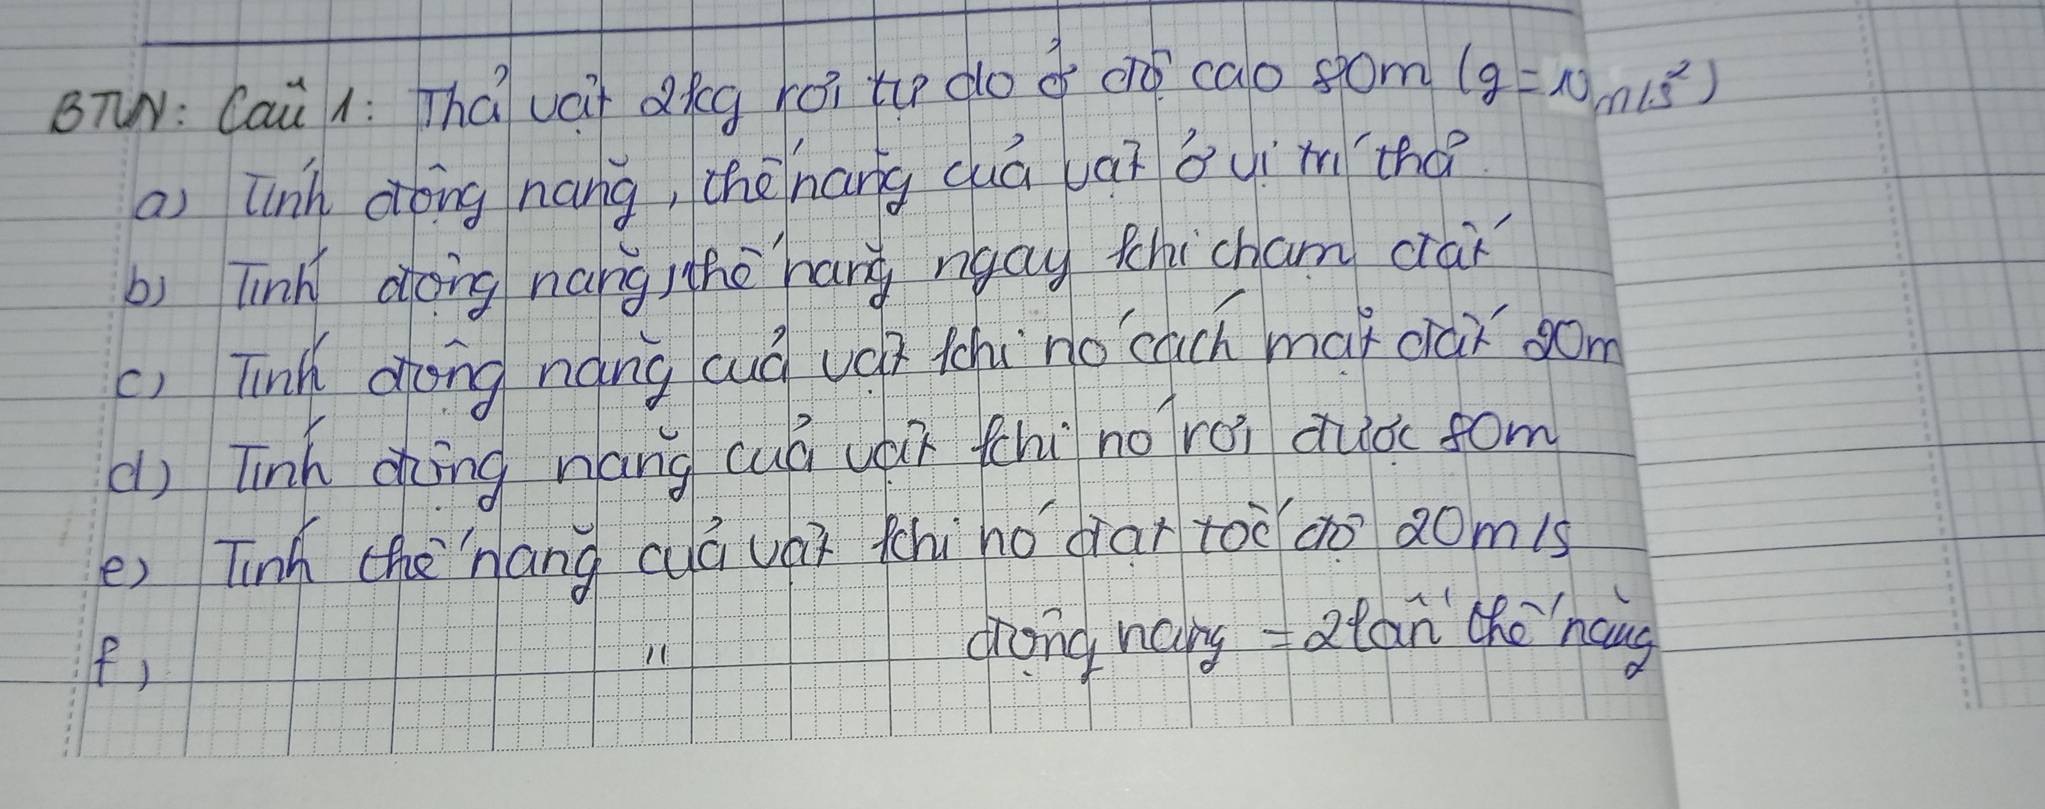 BTVN: Câu 1: Thả vật 2kg rơi tự do ở độ cao 80m (g = 10 m/s²)
a) Tính động năng, thế năng của vật ở vị trí thả.
b) Tính động năng, thế năng ngay khi chạm đất
c) Tính động năng của vật khi nó cách mặt đất 20m
d) Tính động năng của vật khi nó rơi được 80m
e) Tính thế năng của vật khi nó đạt tốc độ 20m/s
f) " động năng = 2 lần thế năng